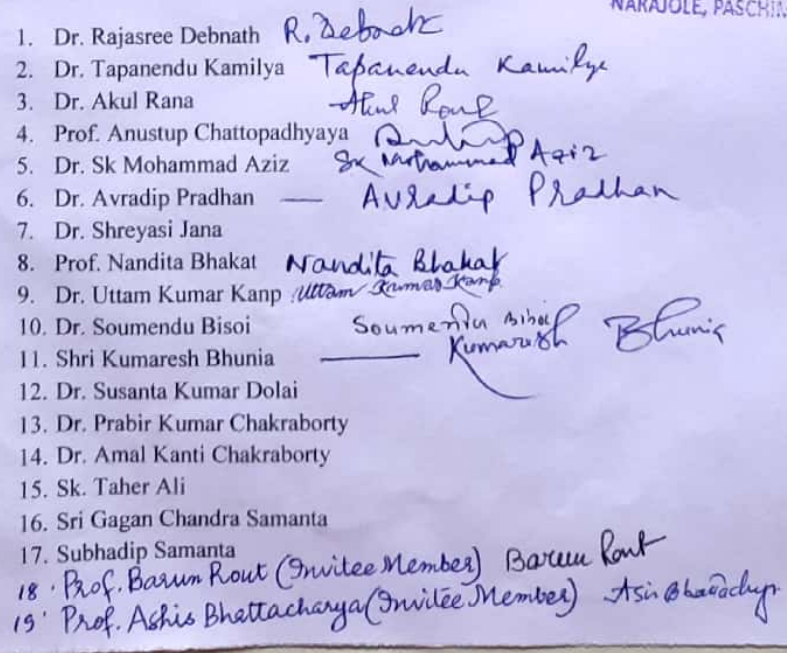 NARAJOLE, PASCHIM
1. Dr. Rajasree Debnath R. Debnath
2. Dr. Tapanendu Kamilya Tapanendu Kamilya
3. Dr. Akul Rana Akul Rana
4. Prof. Anustup Chattopadhyaya
5. Dr. Sk Mohammad Aziz Sk Mohammad Aziz
6. Dr. Avradip Pradhan — Avradip Pradhan
7. Dr. Shreyasi Jana
8. Prof. Nandita Bhakat Nandita Bhakat
9. Dr. Uttam Kumar Kanp Uttam Kumar Kanp.
10. Dr. Soumendu Bisoi Soumendu Bisoi
11. Shri Kumaresh Bhunia — Kumaresh Bhunia
12. Dr. Susanta Kumar Dolai
13. Dr. Prabir Kumar Chakraborty
14. Dr. Amal Kanti Chakraborty
15. Sk. Taher Ali
16. Sri Gagan Chandra Samanta
17. Subhadip Samanta
18. Prof. Barun Rout (Invitee Member) Barun Rout
19. Prof. Ashis Bhattacharya (Invitee Member)